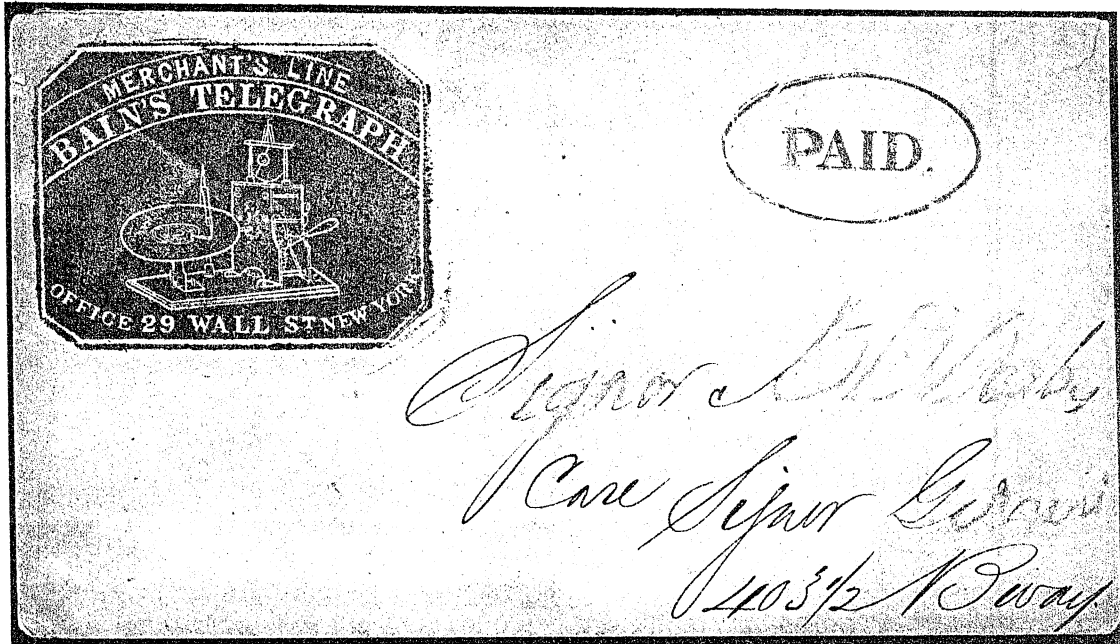 MERCHANT'S LINE
BAIN'S TELEGRAPH
OFFICE 29 WALL ST NEW YORK
PAID.
Signor
Care Signor
403 1/2 Bway